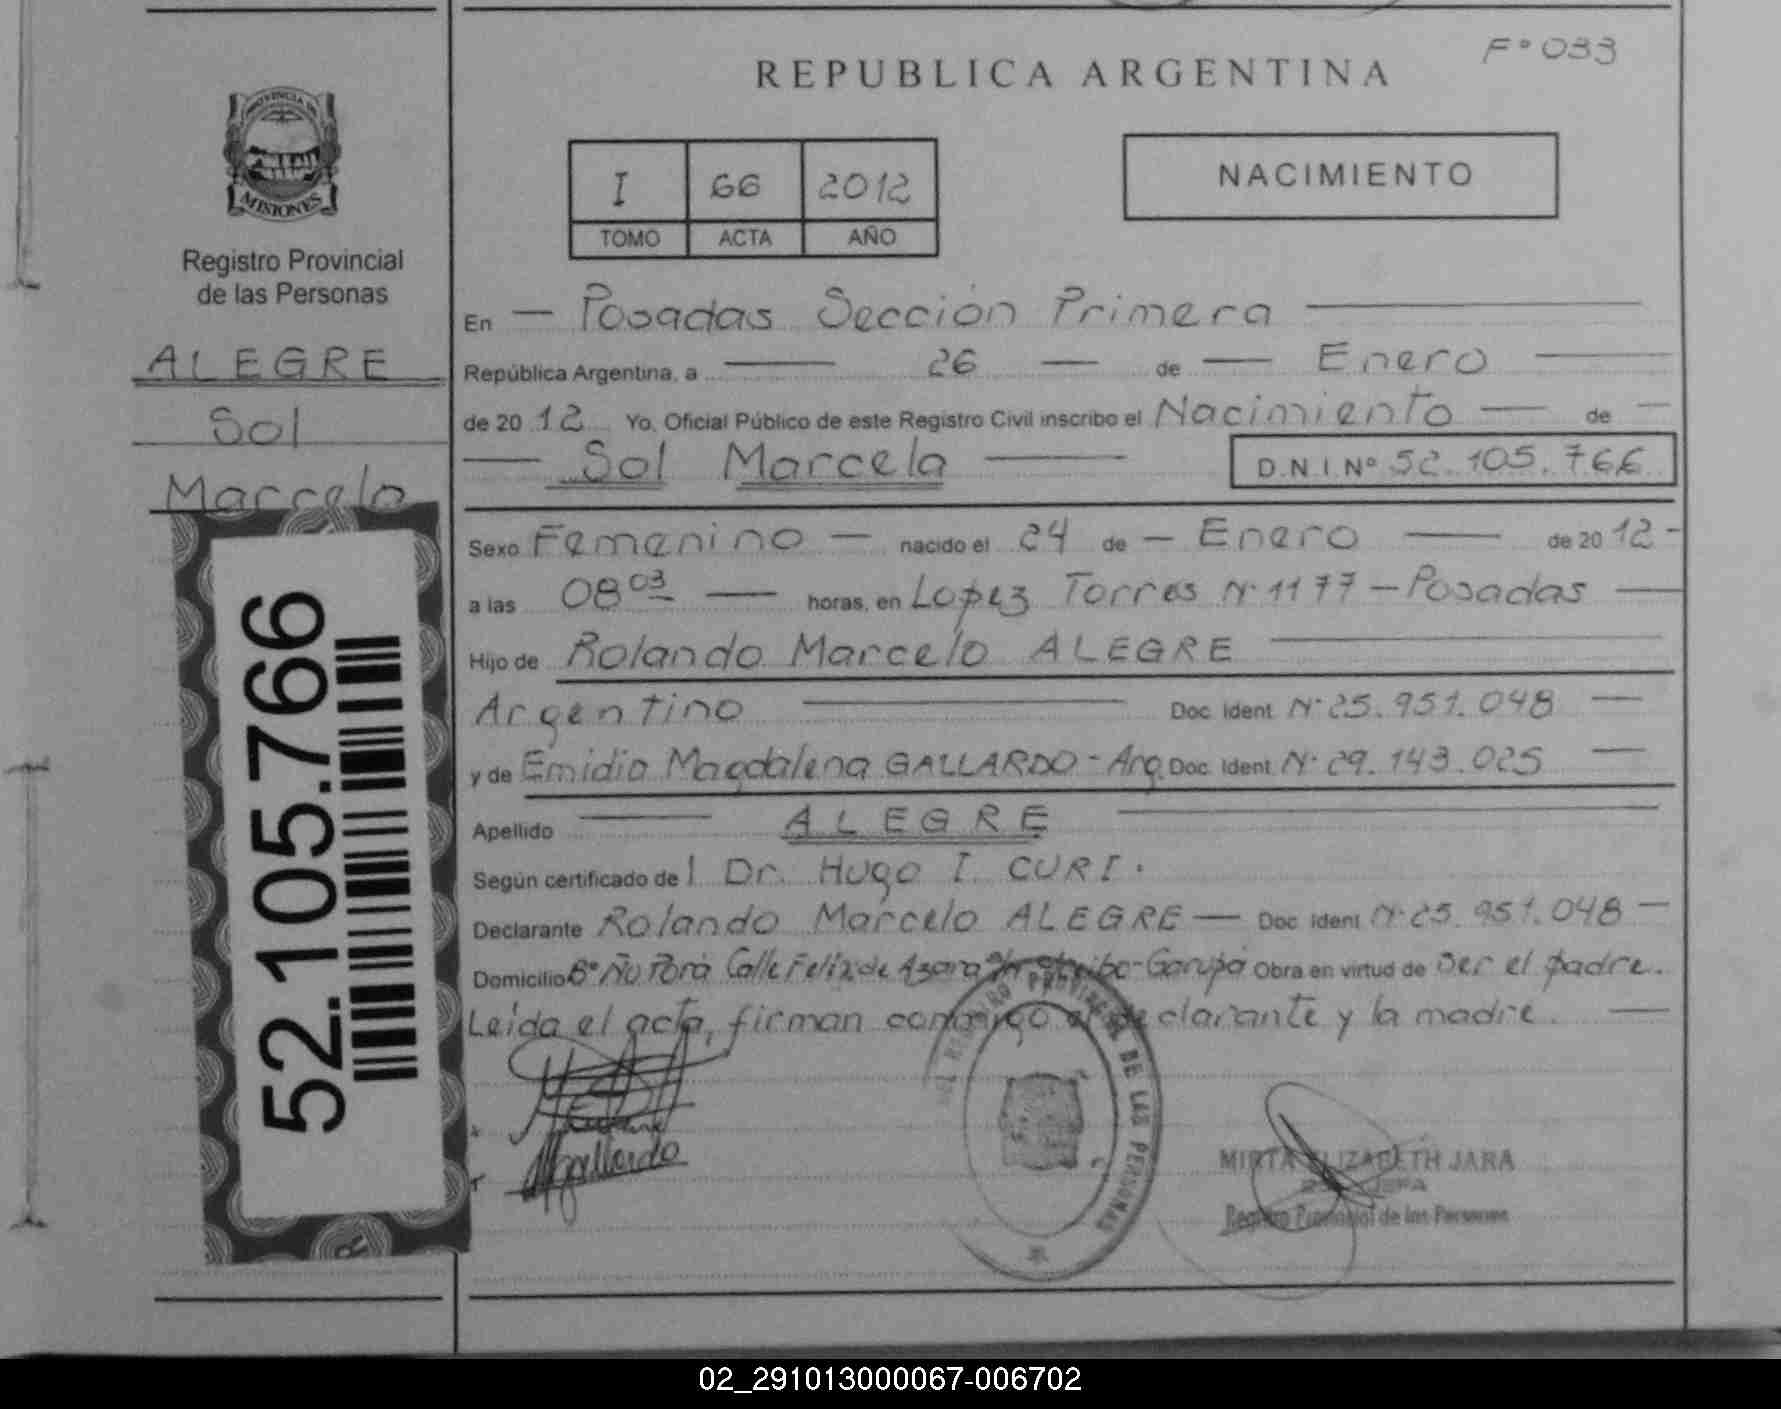 F° 033
REPUBLICA ARGENTINA
PROVINCIA DE
MISIONES
Registro Provincial
de las Personas
ALEGRE
Sol
Marcela
52.105.766
I 66 2012
TOMO ACTA AÑO
NACIMIENTO
En — Posadas Sección Primera —
República Argentina, a — 26 — de — Enero —
de 20 12 Yo, Oficial Público de este Registro Civil inscribo el Nacimiento — de —
— Sol Marcela — D.N.I.Nº 52.105.766
Sexo Femenino — nacido el 24 de — Enero — de 20 12 -
a las 08 03 — horas, en Lopez Torres Nº 1177 - Posadas —
Hijo de Rolando Marcelo ALEGRE —
Argentino — Doc. Ident. Nº 25.951.048 —
y de Emidia Magdalena GALLARDO - Arg. Doc. Ident. Nº 29.143.025 —
Apellido — ALEGRE —
Según certificado del Dr. Hugo I. CURI.
Declarante Rolando Marcelo ALEGRE — Doc. Ident. Nº 25.951.048 —
Domicilio Bº Ñu Porá Calle Felix de Azara - Garupá Obra en virtud de ser el padre.
Leída el acta, firman conmigo el declarante y la madre. —
Mgallardo
REGISTRO PROVINCIAL DE LAS PERSONAS
MIRTA ELIZABETH JARA
JEFA
Registro Provincial de las Personas
02_291013000067-006702